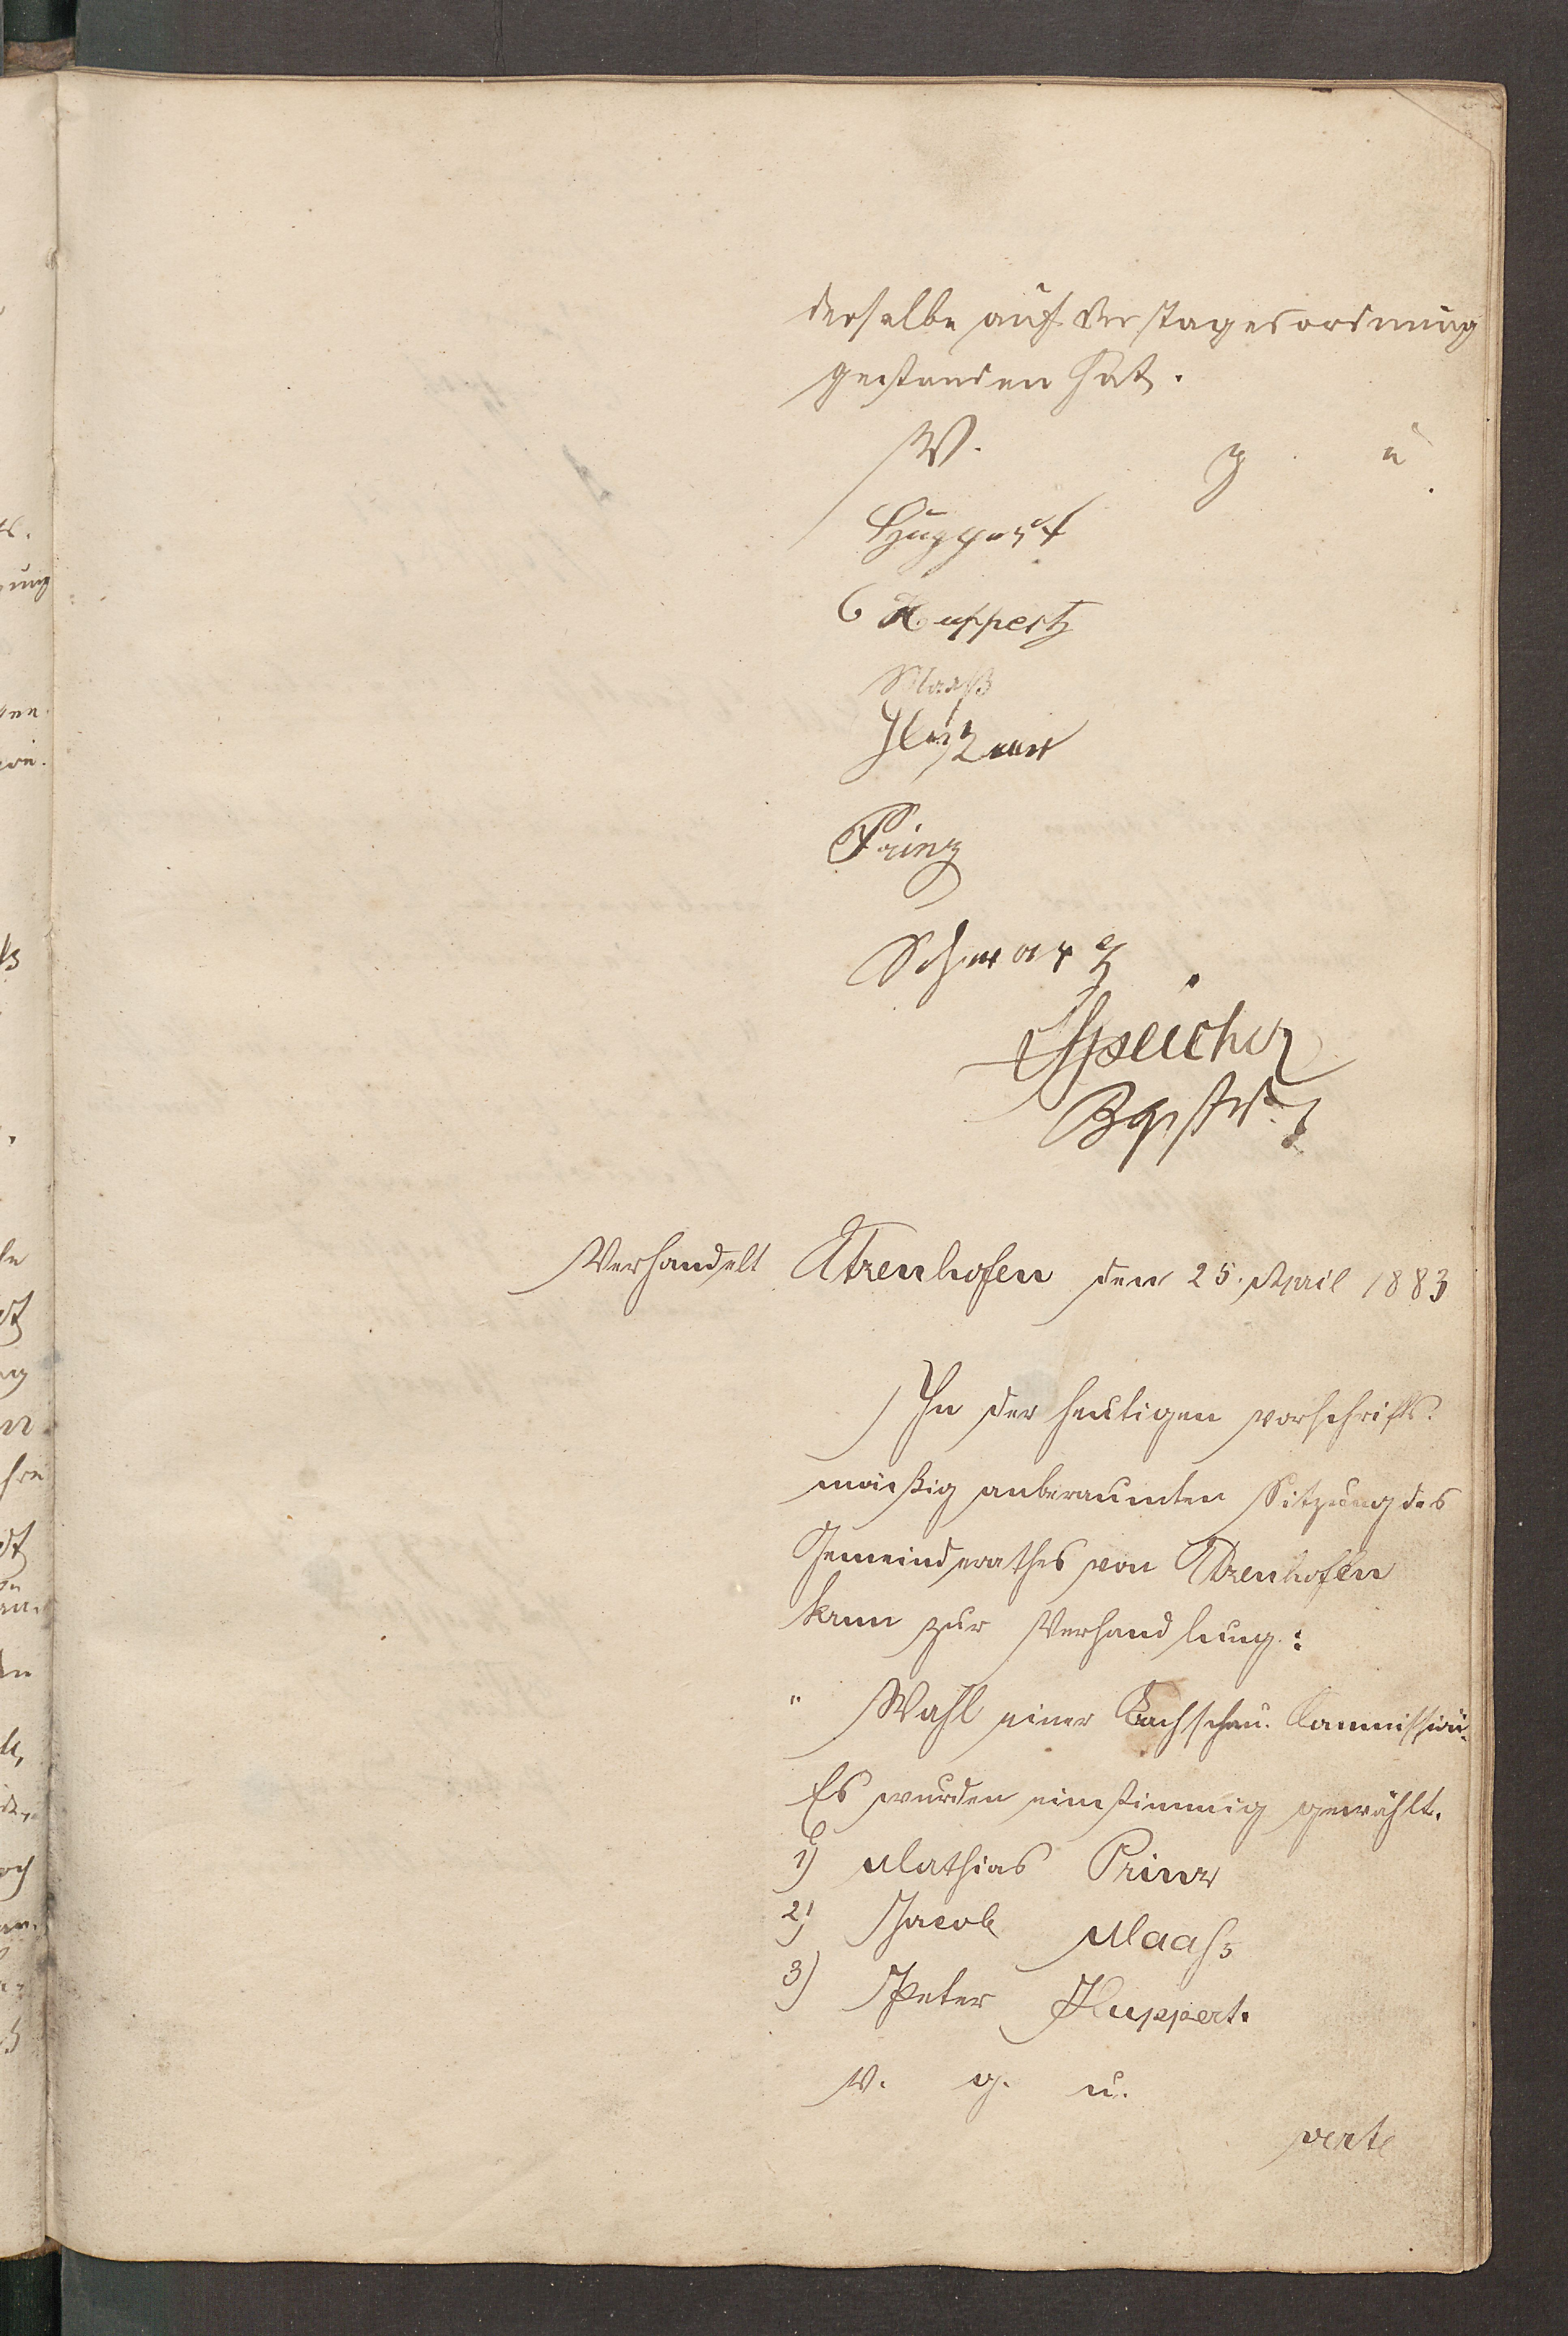 derselbe auf der Tagesordnung
gestanden hat.
V. g. u.
Huppert
Huppertz
Maaß
Prinz
Schwarz
Speicher
Bgrstr.
Verhandelt Utzenhofen den 25. April 1883
In der heutigen vorschrifts-
mäßig anberaumten Sitzung des
Gemeinderathes von Utzenhofen
kam zur Verhandlung:
" Wahl einer Bachschau-Commission.
Es wurden einstimmig gewählt.
1) Mathias Prinz
2) Jacob Maaß
3) Peter Huppert.
V. g. u.
verte